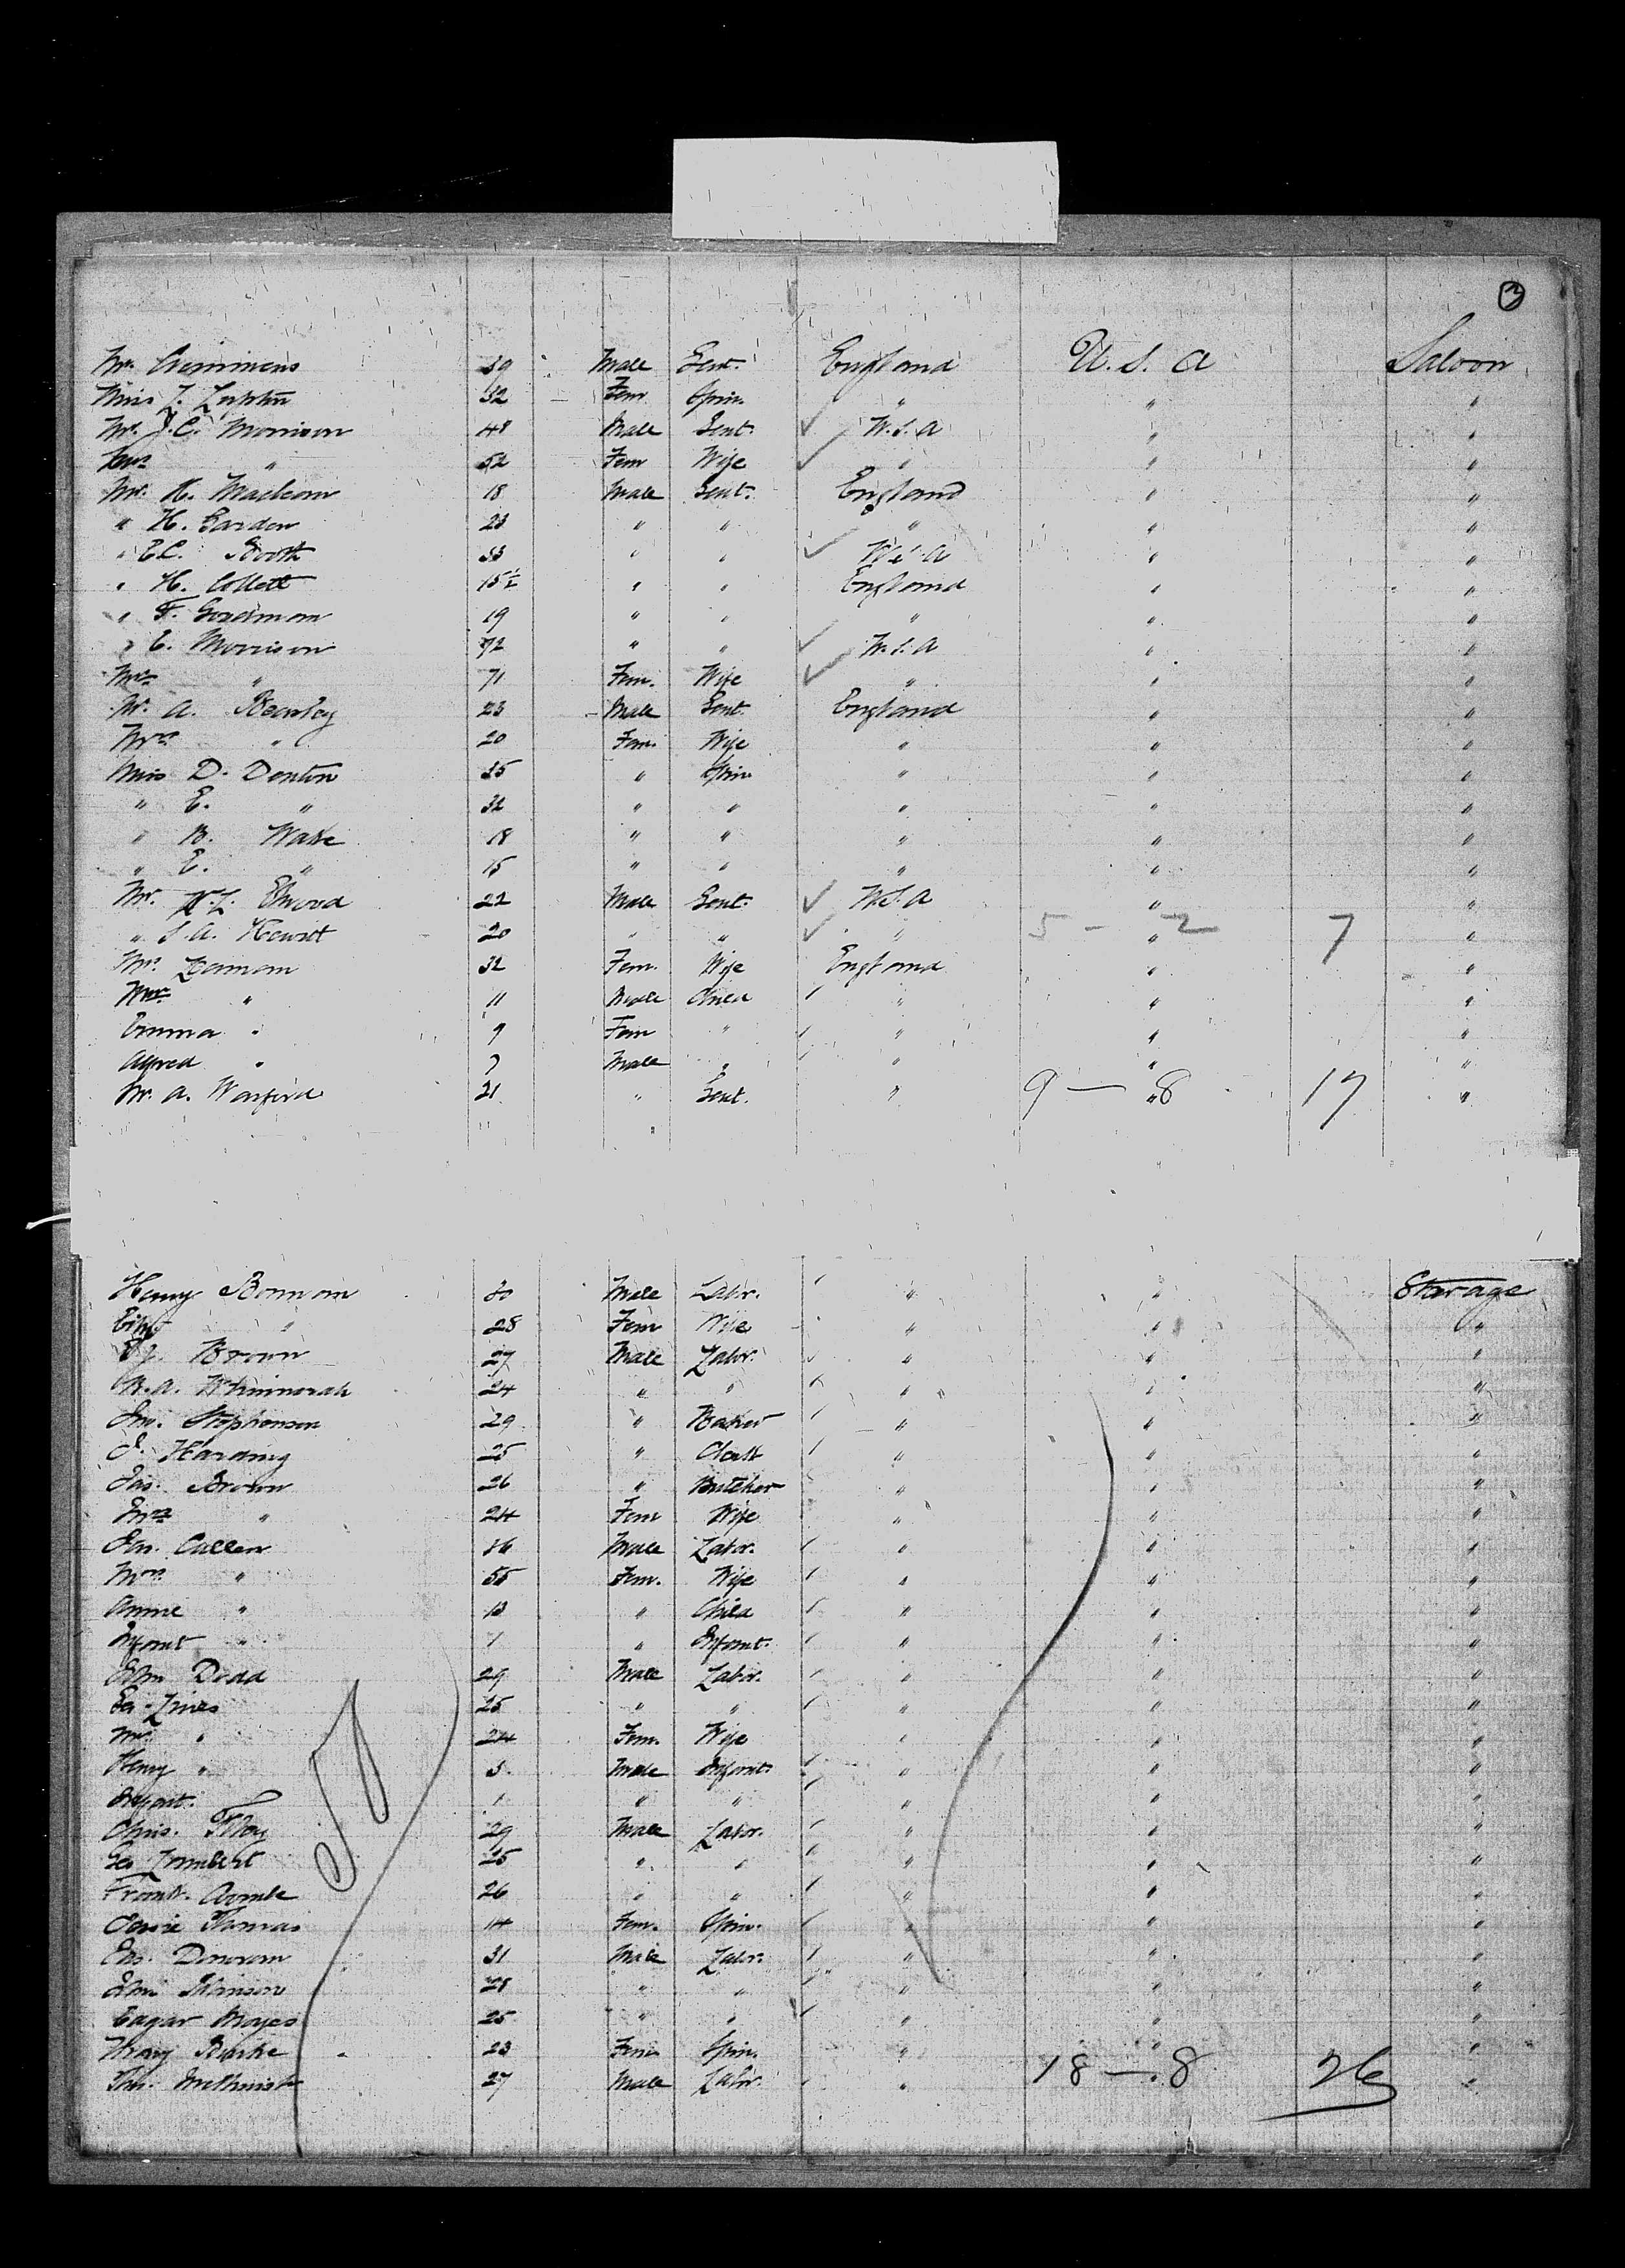 3
Mr. Cummins 39 Male Gent. England U.S.A Saloon
Miss L. Lupton 32 Fem Spin. " " "
Mr. J.C. Morrison 48 Male Gent. U.S.A " "
Mrs " 52 Fem Wife " " "
Mr. H. 18 Male Gent. England " "
" H. Garden 23 " " " " "
" E.C. Booth 33 " " U.S.A " "
" H. Collett 15½ " " England " "
" F. Goodman 19 " " " " "
" C. Morrison 72 " " U.S.A " "
Mrs " 71 Fem. Wife " " "
Mr. A. Bearley 23 Male Gent. England " "
Mrs " 20 Fem. Wife " " "
Miss D. Denton 35 " Spin " " "
" E. " 32 " " " " "
" B. Wake 18 " " " " "
" E. " 15 " " " " "
Mr. W.L. Elwood 22 Male Gent. U.S.A " "
" S.A. Hewitt 20 " " " 5 - 2 " 7 "
Mrs Leaman 32 Fem. Wife England " "
" 11 Male Child " " "
Emma " 9 Fem " " " "
Alfred " 7 Male " " " "
Mr. A. Warford 21 " Gent. " 9 — 8 " 17 "
Henry Bonnam 30 Male Labr. " " Steerage
" 28 Fem Wife " " "
Brown 27 Male Labr. " " "
24 " " " " "
Jno. Stephenson 29 " Baker " " "
J. Harding 25 " Clerk " " "
Jas. Brown 26 " Butcher " " "
Mrs " 24 Fem Wife " " "
Jas. Callen 56 Male Labr. " " "
Mrs " 55 Fem. Wife " " "
Annie " 13 " Child " " "
Infant " 1 " Infant. " " "
John Dodd 29 Male Labr. " " "
Geo Lines 25 " " " " "
Mrs " 24 Fem. Wife " " "
Henry " 3 Male Infant. " " "
Infant. 1 " " " " "
Chris. Filoy 29 Male Labr. " " "
Geo Lambert 25 " " " " "
Frank 26 " " " " "
Jessie Thomas 14 Fem. Spin. " " "
Donovan 31 Male Labr. " " "
28 " " " " "
Edgar Moyes 25 " " " " "
Mary Burke 23 Fem Spin. " " "
Thos. 27 Male Labr. " 18 — 8 26 "